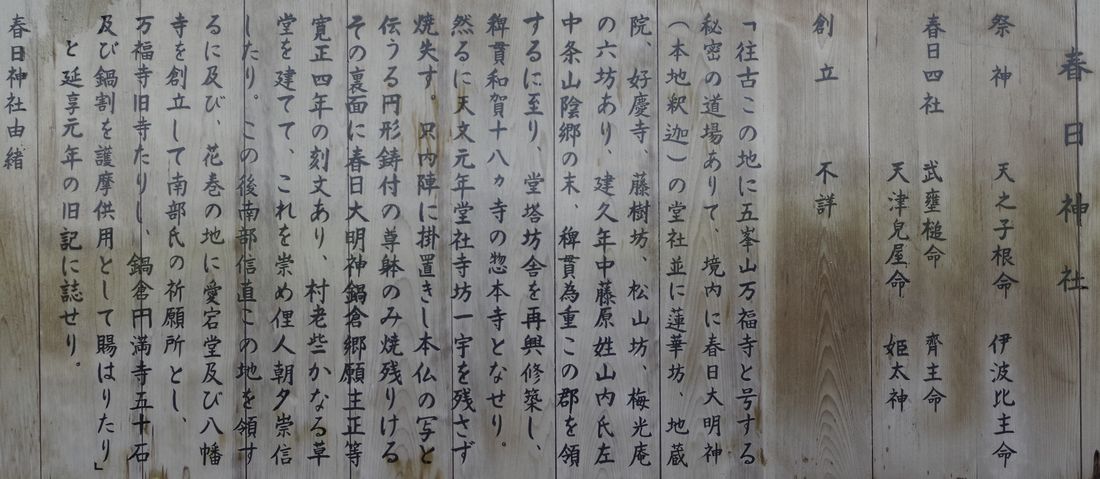 春日神社
祭神　天之子根命　伊波比主命
春日四社　武甕槌命　齊主命
天津児屋命　姫太神
創立　不詳
「往古この地に五峯山万福寺と号する
秘密の道場ありて、境内に春日大明神
（本地釈迦）の堂社並に蓮華坊、地蔵
院、好慶寺、藤樹坊、松山坊、梅光庵
の六坊あり、建久年中藤原姓山内氏左
中条山陰郷の末、稗貫為重この郡を領
するに至り、堂塔坊舎を再興修築し、
稗貫和賀十八ヵ寺の惣本寺となせり。
然るに天文元年堂社寺坊一宇を残さず
焼失す。只内陣に掛置きし本仏の写と
伝うる円形鋳付の尊躰のみ焼残りける
その裏面に春日大明神鍋倉郷願主正等
寛正四年の刻文あり、村老些かなる草
堂を建てて、これを崇め俚人朝夕崇信
したり。この後南部信直この地を領す
るに及び、花巻の地に愛宕堂及び八幡
寺を創立して南部氏の祈願所とし、
万福寺旧寺たりし、鍋倉円満寺五十石
及び鍋割を護摩供用として賜はりたり」
と延享元年の旧記に誌せり。
春日神社由緒